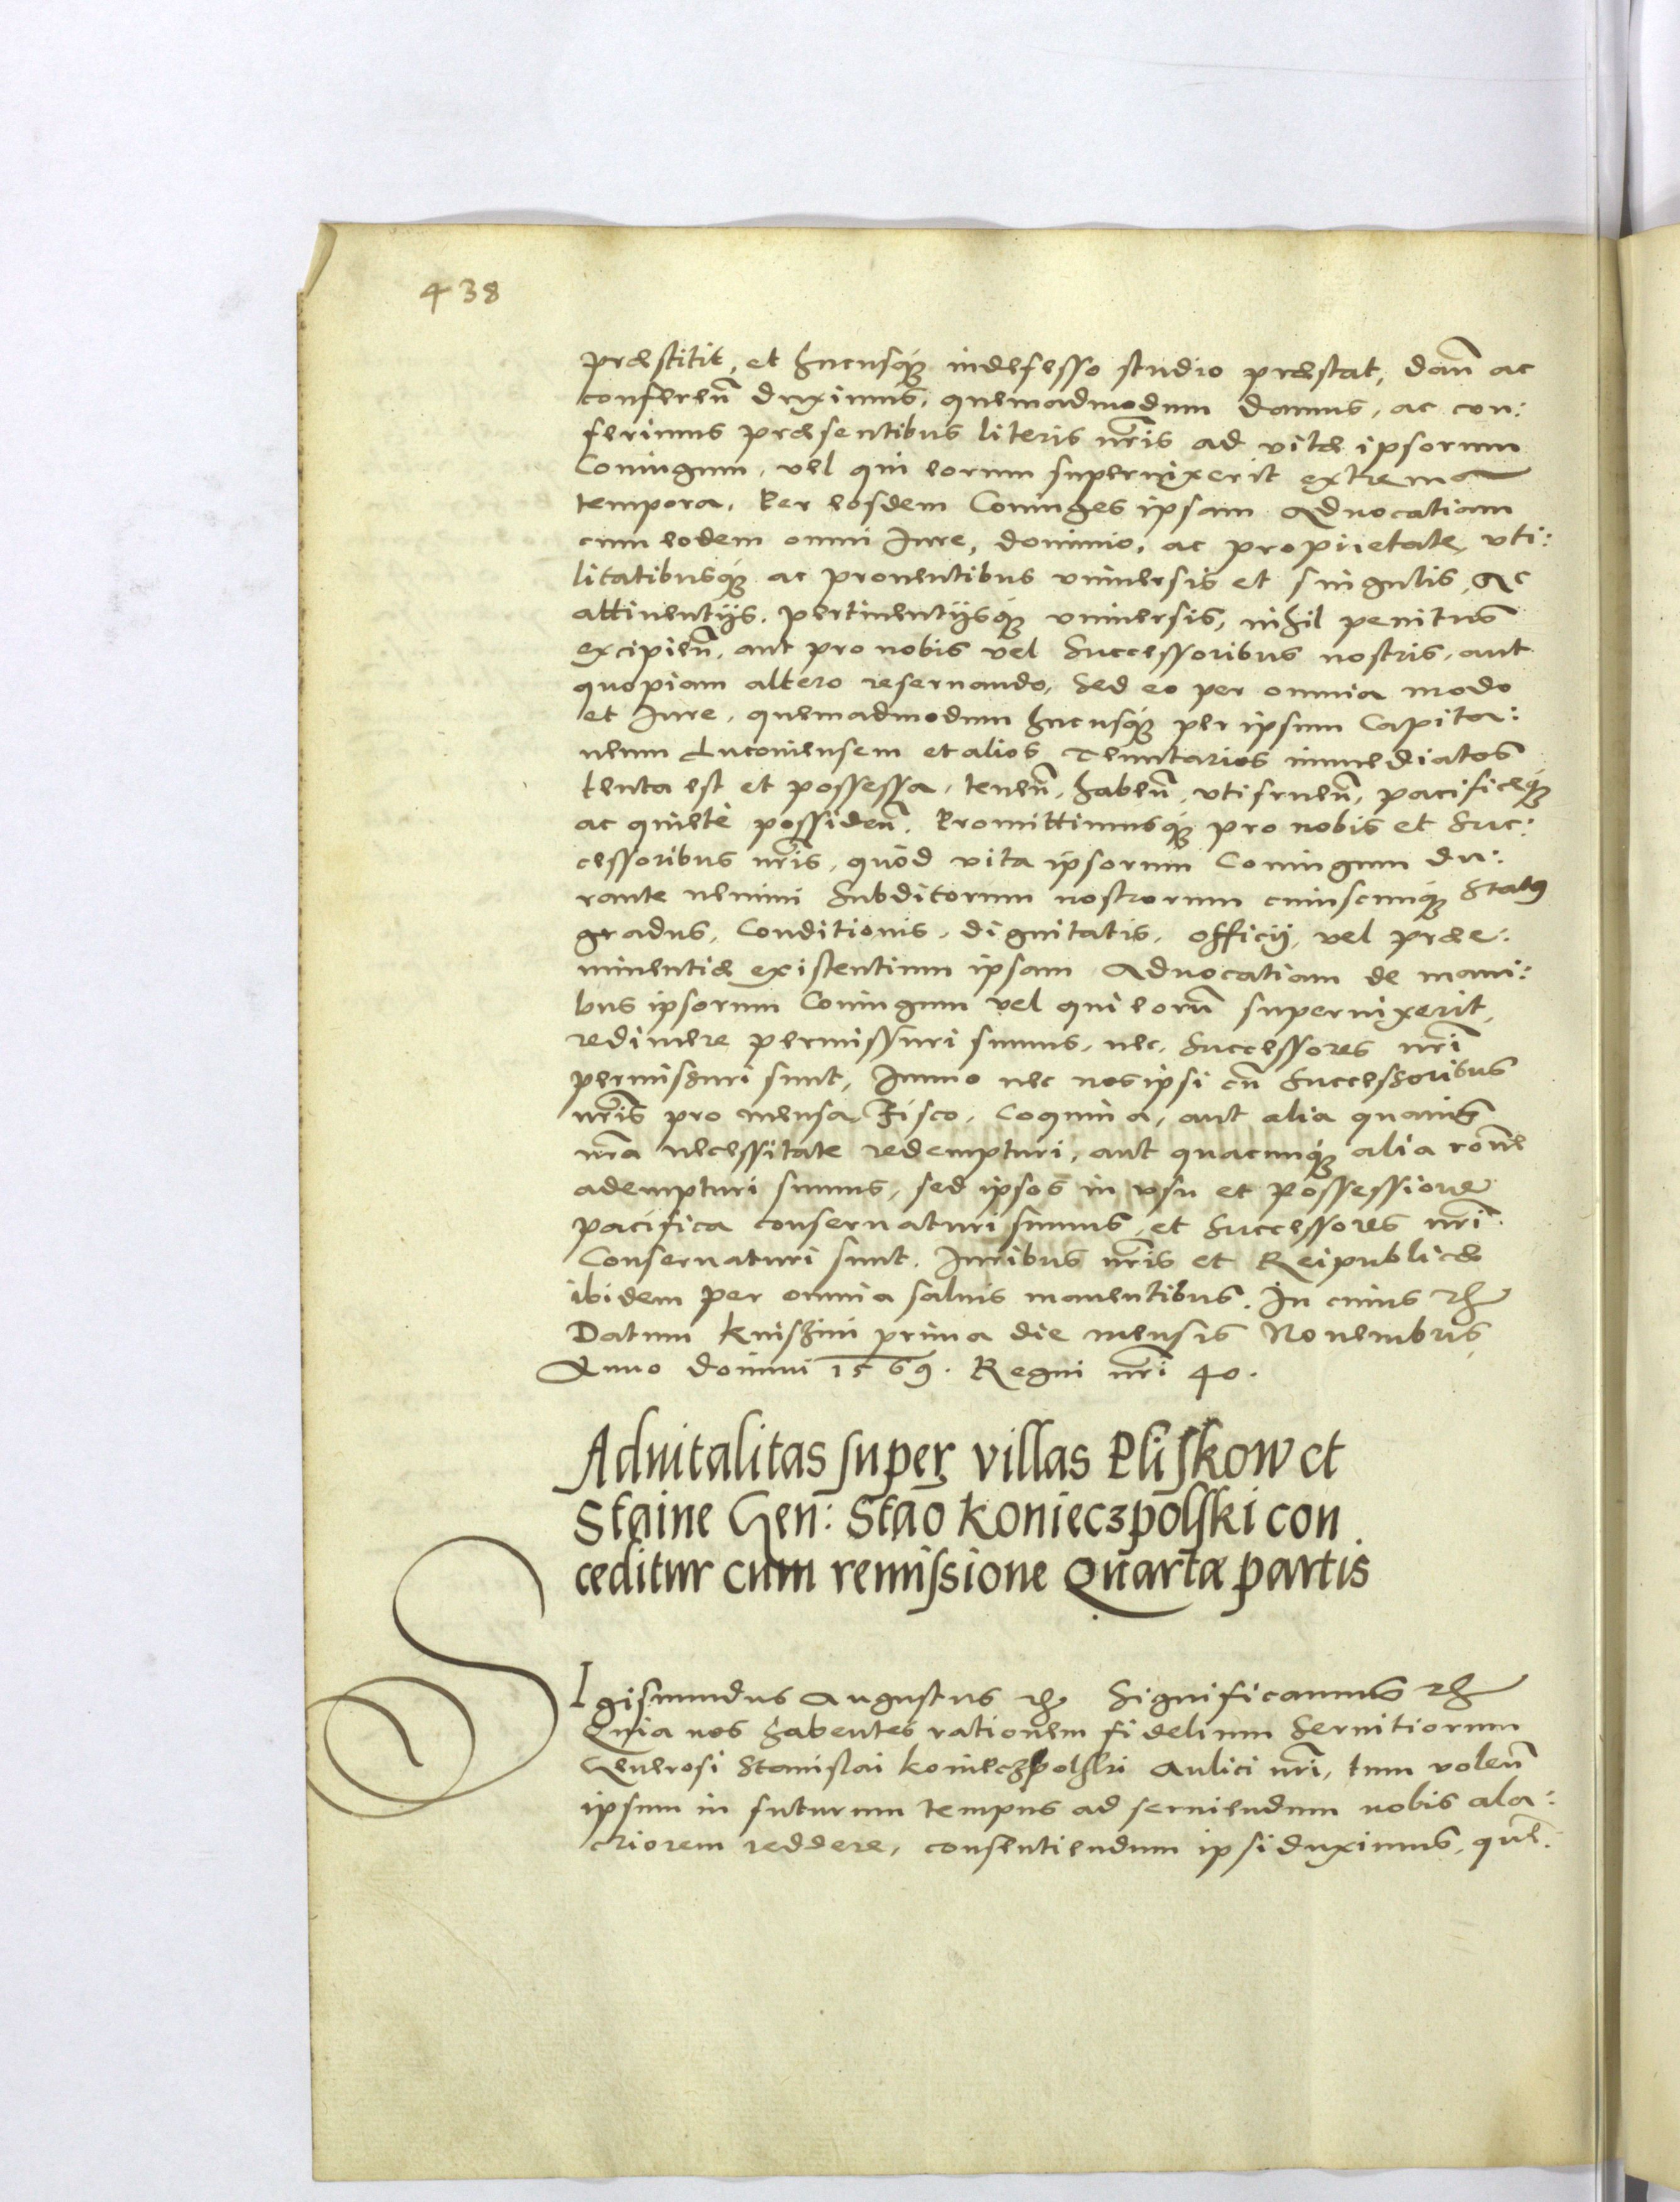 438
præstitit, et hucusq́ꝫ indefesso studio præstat, dañ ac
conferen̄ duximus, quemadmodum damus, ac con:
ferimus præsentibus literis nr̄is ad vitæ ipsorum
Coniugum, vel qui eorum supervixerit extrema
tempora. Per eosdem Coniuges ipsam Aduocatiam
cum eodem omni Iure, dominio, ac proprietate, vti:
litatibusq́ꝫ ac prouentibus vniuersis et singulis, Ac
attinentijs, pertinentijsq́ꝫ vniuersis, nihil penitus
excipien̄, aut pro nobis vel Successoribus nostris, aut
quopiam altero reseruando, Sed eo per omnia modo
et Iure, quemadmodum hucusq́ꝫ per ipsum Capita:
neum Luconiensem et alios Tenutarios immediatos
tenta est et possessa, tenen̄, haben̄, vtifruen̄, pacificeq́ꝫ
ac quietè possiden̄. Promittimusq́ꝫ pro nobis et Suc:
cessoribus nr̄is, quòd vita ipsorum Coniugum du:
rante nemini Subditorum nostrorum cuiuscunq́ꝫ Statꝰ
gradus, Conditionis, dignitatis, officij, vel præe:
minentiæ existentium ipsam Aduocatiam de mani:
bus ipsorum Coniugum vel qui eorū superuixerit,
redimere permissuri sumus, nec Successores nr̄i
permissuri sunt, Immo nec nos ipsi cū Successoribus
nr̄is pro mensa, Fisco, Coquina, aut alia quauis
nr̄a necessitate redempturi, aut quacunq́ꝫ alia ron̄e
adempturi sumus, sed ipsos in vsu et possessione
pacifica conseruaturi sumus, et Successores nr̄i
Conseruaturi sunt. Iuribus nr̄is et Reipublicæ
ibidem per omnia saluis manentibus. In cuius rꝫ
Datum Knishini prima die mensis Nouembris
Anno domini 1569. Regni nr̄i 40.
Aduitalitas super villas Pliskow et
Staine Gen: Stāo Konieczpolski con
ceditur cum remissione Quartæ partis
SIgismundus Augustus rꝫ Significamus rꝫ
Quia nos habentes rationem fidelium Seruitiorum
Generosi Stanislai Koniechpolski Aulici nr̄i, tum volen̄
ipsum in futurum tempus ad seruiendum nobis ala:
criorem reddere, consentiendum ipsi duximus, quē: